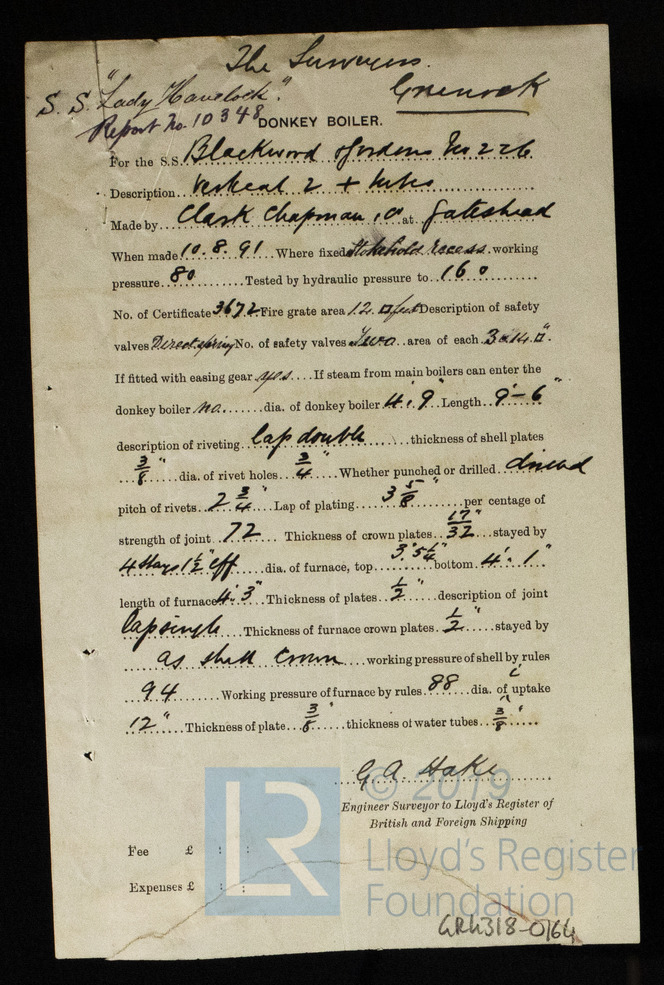 The Surveyors
Greenock
S. S. "Lady Havelock".
Report No. 10348
DONKEY BOILER.
For the S.S. Blackwood & Gordons No 226
Description Vertical 2 + tubes
Made by Clark Chapman & Co at Gateshead
When made 10.8.91 Where fixed Stokehold Recess working
pressure 80 Tested by hydraulic pressure to 160
No. of Certificate 3672 Fire grate area 12 □ feet Description of safety
valves Direct spring No. of safety valves Two area of each 3.14 □".
If fitted with easing gear yes If steam from main boilers can enter the
donkey boiler no. dia. of donkey boiler 4'. 9" Length 9'-6"
description of riveting lap double thickness of shell plates
3/8" dia. of rivet holes 3/4" Whether punched or drilled drilled
pitch of rivets 2 3/4" Lap of plating 3 5/8" per centage of
strength of joint 72 Thickness of crown plates 17/32" stayed by
4 stays 1 1/2" eff dia. of furnace, top 3'.5 1/4" bottom 4'. 1"
length of furnace 4'. 3" Thickness of plates 1/2" description of joint
lap single Thickness of furnace crown plates 1/2" stayed by
as shell crown working pressure of shell by rules
94 Working pressure of furnace by rules 88 dia. of uptake
12" Thickness of plate 3/8" thickness of water tubes 3/8"
G. A. Hake
Engineer Surveyor to Lloyd's Register of
British and Foreign Shipping
Fee £ : :
Expenses £ : :
© 2019
LR
Lloyd's Register
Foundation
GRK318-0164